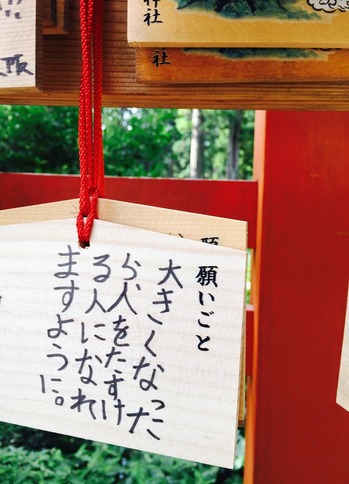 願いごと
大きくなった
ら人をたすけ
る人になれ
ますように。
神社
社
願
阪